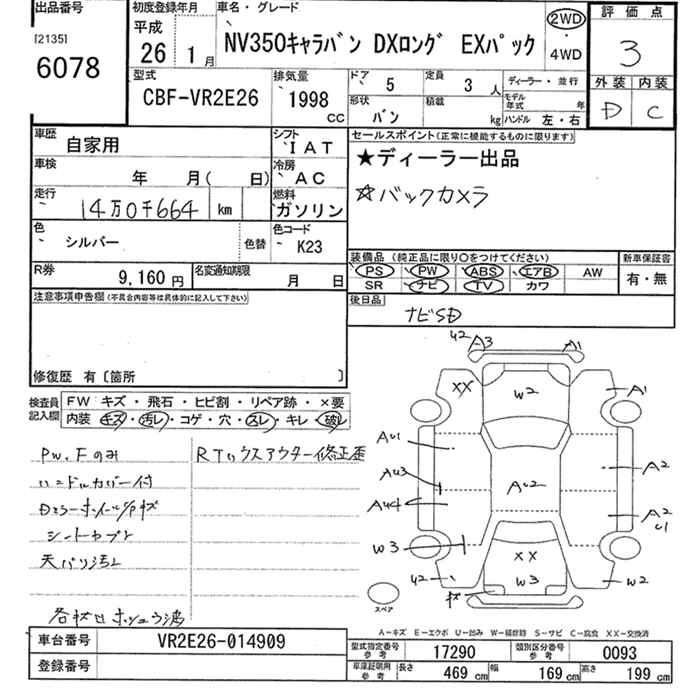 出品番号
[2135]
6078
初度登録年月
平成
26 1月
車名・グレード
NV350キャラバン DXロング EXパック
2WD
・
4WD
評価点
3
外装 内装
D C
型式
CBF-VR2E26
排気量
1998
CC
ドア
5
定員
3人
形状
バン
積載
kg
ディーラー・並行
モデル年式 年
ハンドル 左・右
車歴
自家用
シフト
IAT
車検
年 月( 日)
冷房
AC
走行
14万0千664 km
燃料
ガソリン
色
シルバー
色替
色コード
K23
R券
9,160円
名変通知期限
月 日
セールスポイント(正常に機能するものに限ります)
★ディーラー出品
☆バックカメラ
装備品 (純正品に限り○をつけてください)
PS PW ABS エアB AW
SR ナビ TV カワ
新車保証書
有・無
後日品
ナビSD
注意事項申告欄(不具合内容等は具体的に記入して下さい)
修復歴 有〔箇所 〕
検査員記入欄
FW キズ・飛石・ヒビ割・リペア跡・×要
内装 キズ・汚レ・コゲ・穴・スレ・キレ・破レ
PW.Fのみ
RTハウスアウター修正歪
ハンドルカバー付
Dミラーホイール/Pキズ
シートヤブレ
天バリ汚レ
U2 A3 A1
XX W2 A1
AU1
AU3 AU2 A2
AU4 A2
U1
W3 XX
U2 W3 W2
キズ
スペア
A-キズ E-エクボ U-凹み W-補修跡 S-サビ C-腐食 XX-交換済
車台番号
VR2E26-014909
登録番号
型式指定番号
参考
17290
類別区分番号
参考
0093
車庫証明用
参考
長さ
469 cm
幅
169 cm
高さ
199 cm